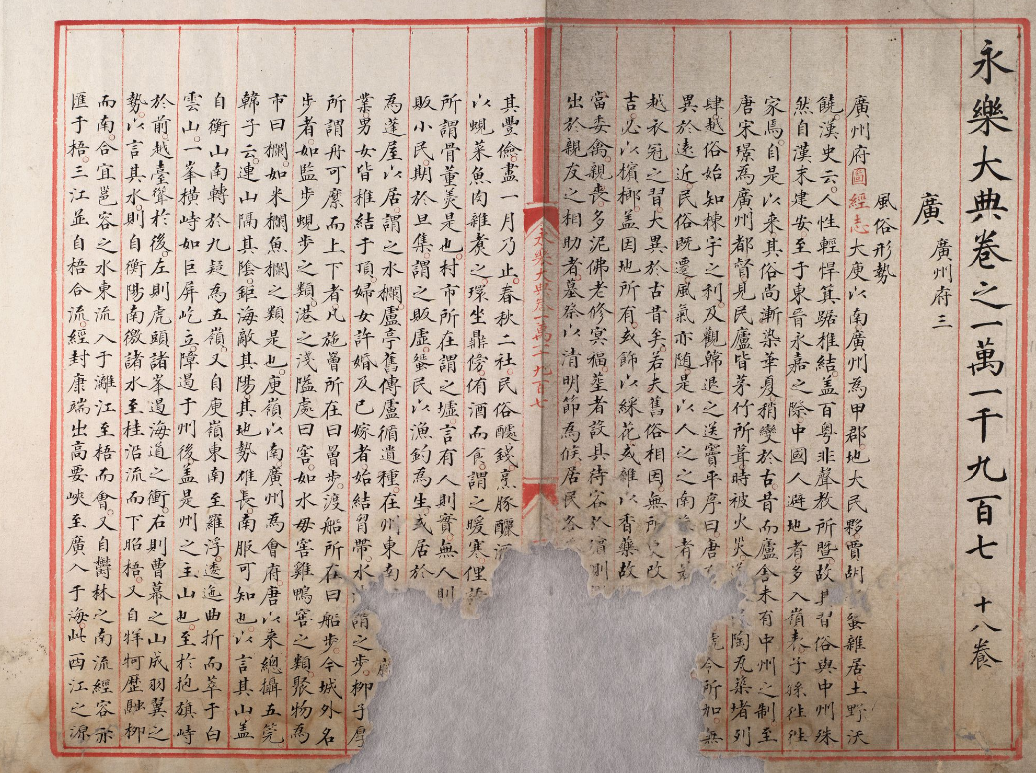 永樂大典卷之一萬一千九百七 十八養
廣 廣州府三
風俗形勢
廣州府圖經志大庾以南廣州為甲郡地大民夥賈胡蜑雜居土野沃
饒漢史云人性輕悍箕踞椎結蓋百粤非聲教所曁故其習俗與中州殊
然自漢末建安至于東晉永嘉之際中國人避地者多入嶺表子孫往往
家焉自是以來其俗尚漸染華夏稍變於古昔而廬舎未有中州之制至
唐宋璟為廣州都督見民廬皆茅竹所葺時被火災 陶瓦築堵列
肆越俗始知棟宇之利及觀韓退之送竇平序曰唐 今所加無
異於遠近民俗既遷風氣亦隨是以人之之南 者
越衣冠之習大異於古昔矣若夫舊俗相因無所 改
吉必以檳榔蓋因地所有或飾以綵花或雜以香藥故
當委禽親喪多泥佛老修冥福塟者設其待客於 則
出於親友之相助者墓祭以清明節為候居民各
其豐儉盡一月乃止春秋二社民俗醵錢烹豚釃酒
以蜆菜魚肉雜煑之環坐鼎傍侑酒而食謂之暖寒俚
所謂骨董羮是也村市所在謂之墟言有人則實無人則
販小民期於旦集謂之販虛蜑民以漁釣為生或居於
為蓬屋以居謂之水欄盧亭舊傳盧循遺種在州東南
業男女皆椎結于頂婦女許婚及已嫁者始結胷帶水 謂之步栁子厚
所謂舟可縻而上下者凡施罾所在曰罾步渡船所在曰船步今城外名
步者如監步蜆步之類港之淺隘處曰窖如水毋窖雞鴨窖之類聚物為
市曰欄如米欄魚欄之類是也庾嶺以南廣州為會府唐以來總攝五筦
韓子云連山隔其隂鉅海敵其陽其地勢雄長南服可知也以言其山蓋
自衡山南轉於九疑為五嶺又自庾嶺東南至羅浮逶迤曲折而萃于白
雲山一峯橫峙如巨屏屹立障過于州後蓋是州之主山也至於抱旗峙
於前越臺聳於後左則虎頭諸峯過海道之衝右則曹幕之山成羽翼之
勢以言其水則自衡陽南徼諸水至桂沿流而下昭梧又自牂牁歷融栁
而南合宜邕容之水東流入于灕江至梧而會又自鬱林之南流經容亦
匯于梧三江並自梧合流經封康端出高要峽至廣入于海此西江之源
永樂大典卷一萬一千九百七